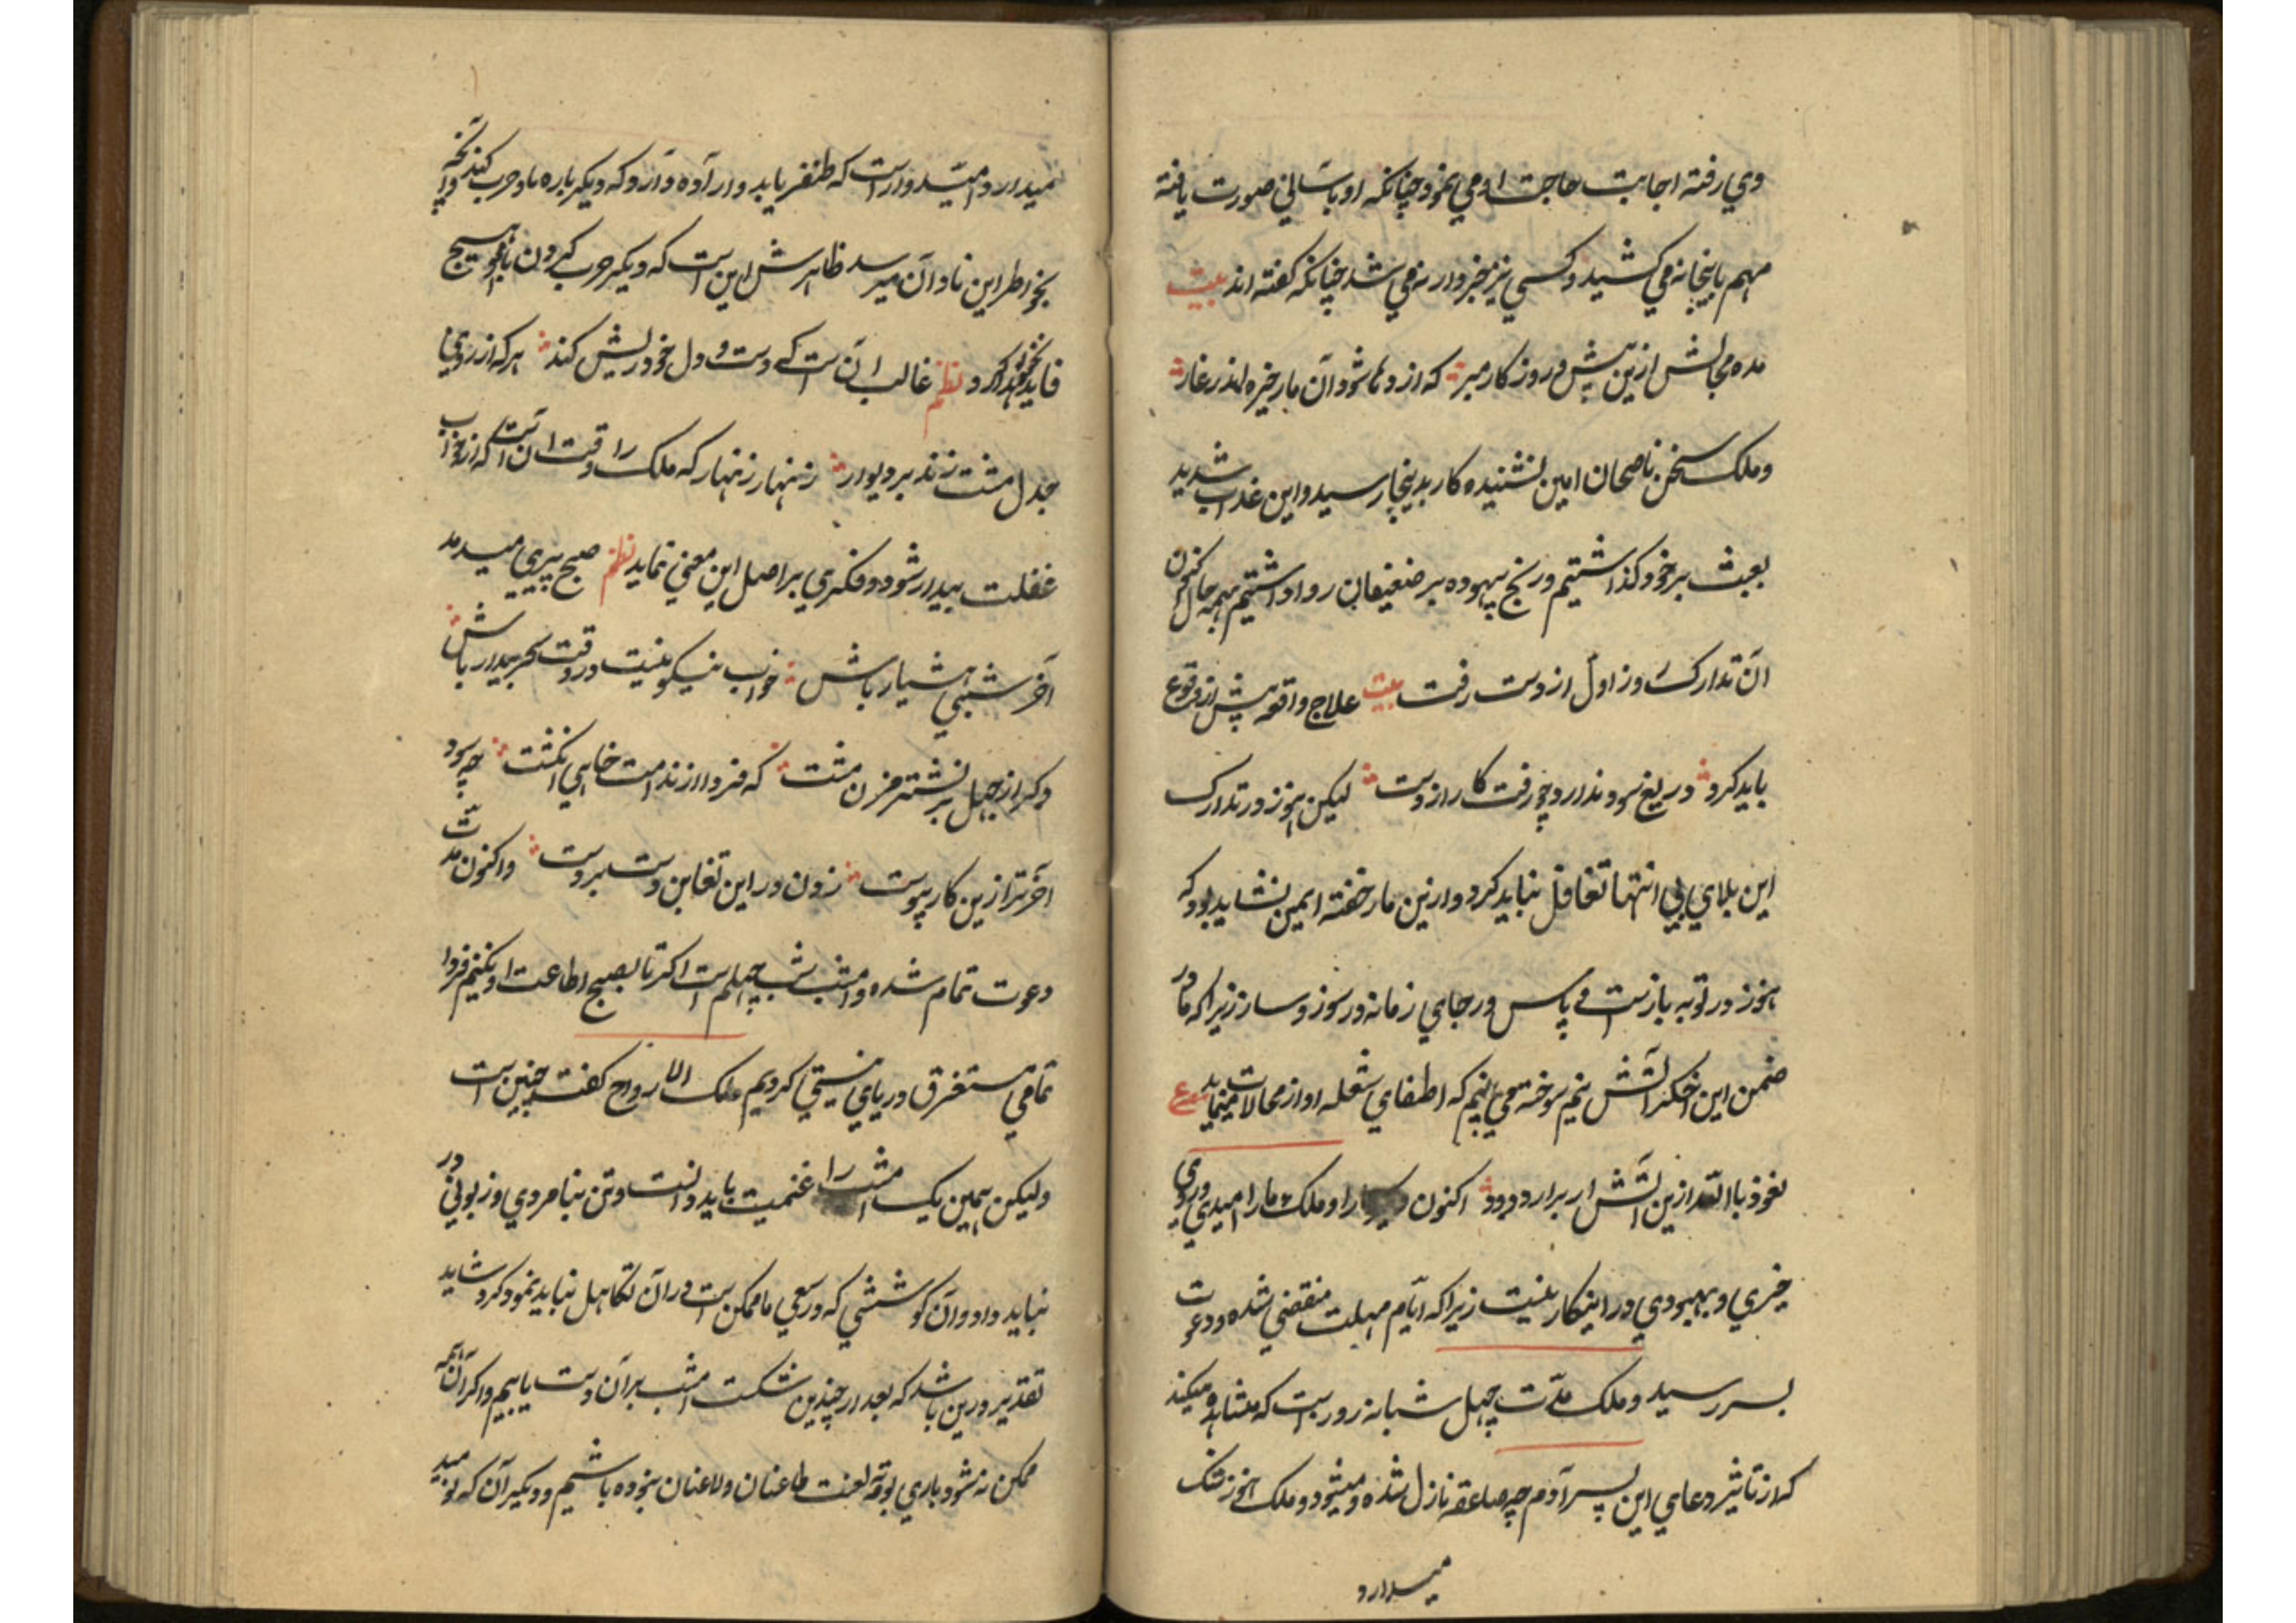 وي رفته اجابت حاجت او مي نمود چنانكه او باساني صورت يافته
مهم باينجانه مي كشيد و كسي نيز خبردار نمي شد چنانكه گفته اند بيت
مده مجالش ازين پيش و روزگار مبر كه اژدها شود آن مار خيره اندر غار
و ملك سخن ناصحان امين نشنيده كار بدينجا رسيد و اين عذاب شديد
بعبث بر خود گذاشتيم و رنج بيهوده بر ضعيفان روا داشتيم بهمه حال اكنون
آن تدارك روز اول از دست رفت بيت علاج واقعه پيش از وقوع
بايد كرد دريغ سود ندارد چو رفت كار از دست ليكن هنوز در تدارك
اين بلاي بي انتها تغافل نبايد كرد و ازين مار خفته ايمن نشايد بود كه
هنوز در توبه بازست و ياس و رجاي زمانه در سوز و ساز زيرا كه ما در
ضمن اين اخگر آتش نيم سوخته مي بينم كه اطفاي شعله او از محالات مينمايد مصرع
نعوذ بالله ازين آتش ار برارد دود اكنون را و ملك ما را اميدي و روي
خيري و بهبودي در اينكار نيست زيرا كه ايام مهلت منقضي شده و دعوت
بسر رسيد و ملك مدت چهل شبانه روز است كه مشاهده ميكند
كه از تاثير دعاي اين پسر آدم چه صاعقه نازل شده و ميشود و ملك هنوز شك
ميدارد
ميدارد و اميدوار است كه ظفر يابد و ار آده دارد كه ديگر باره باو حرب كند آنچه
بخواطر اين نادان ميرسد ظاهرش اين است كه ديگر حرب كردن باو هيچ
فايده نخواهد كرد نظم غالب آن است كه دست و دل خود ريش كند هر كه از روي
جدل مشت زند بر ديوار زنهار زنهار كه ملك را وقت آن است كه از خواب
غفلت بيدار شود و فكري بر اصل اين معني نمايد نظم صبح پيري ميدمد
آخر شبي هشيار باش خواب نيكو نيست در وقت سحر بيدار باش
دگر از جهل بر نشتر مزن مشت كه فردا از ندامت خايي انگشت چه سود
آخر تر ازين كار پيوست زدن در اين تغابن دست بر دست و اكنون مدت
دعوت تمام شده و امشب شب چهلم است اگر تا بصبح اطاعت او نكنيم فردا
تمامي مستغرق درياي نيستي گرديم ملك الارواح گفت چنين است
وليكن همين يك امشب را غنيمت بايد دانست و تن بنامردي و زبوني در
نبايد داد و آن كوششي كه در سعي ما ممكن است در آن تكاهل نبايد نمود كرد شايد
تقدير درين باشد كه بعد از چندين شكست امشب بر آن دست يابيم و اگر آن همه
ممكن نشود باري بوقه لعنت طاعنان و لاعنان نبوده باشيم و ديگر آن كه نوميد